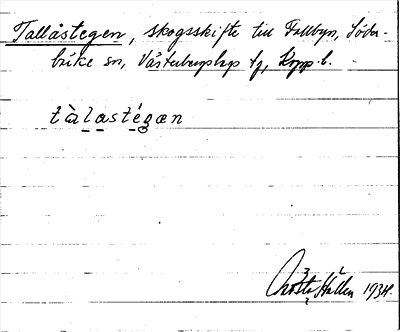 Tallåstegen, skogsskifte till Fallbyn, Söder-
bärke sn, Västerbergslags fg, Kopp. l.
tàlastégæn
Gösta Hallen 1934.